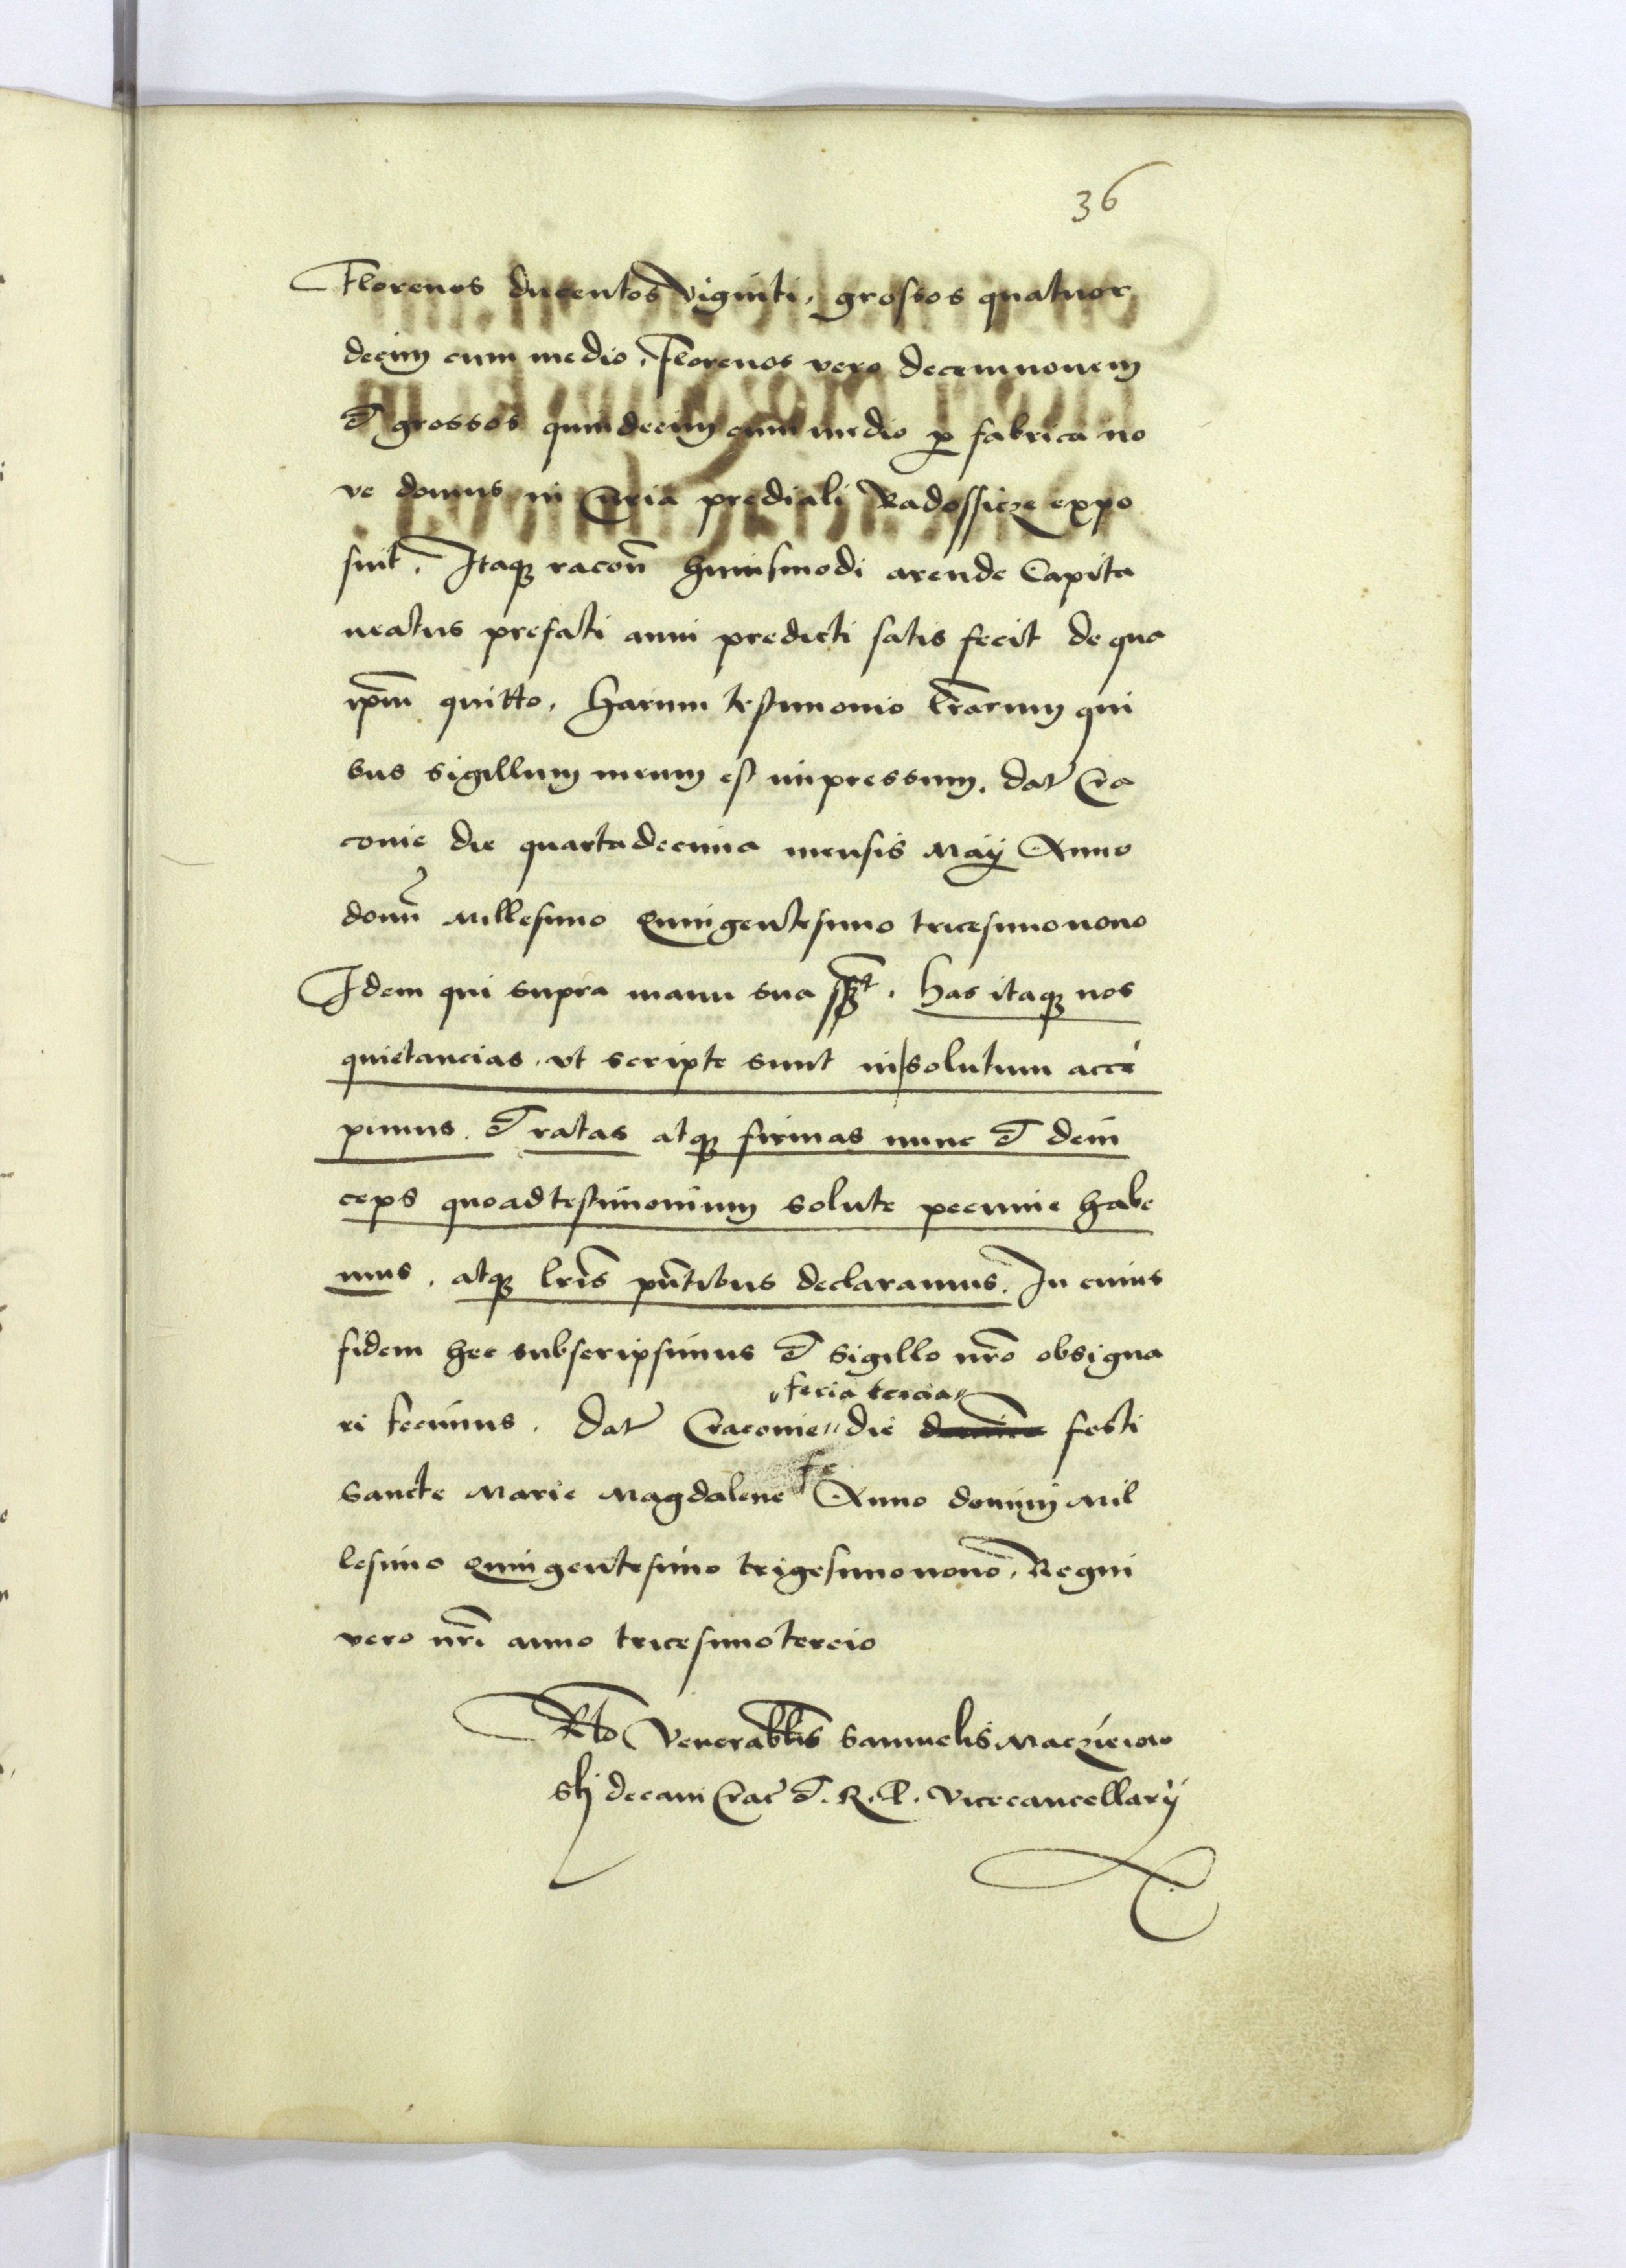 36
Florenos ducentos viginti, grossos quatuor
decim cum medio, Florenos vero decemnonem
et grossos quindecim cum medio p fabrica no
ve domus in Curia prediali Radossicze expo
suit. Itaq racon huiusmodi arende Capita
neatus prefati anni predicti satis fecit de qua
ipm quitto. Harum testimonio lrarum qui
bus sigillum meum est impressum. Dat Cra
covie die quartadecima mensis Maij Anno
domi Millesimo Quingentesimo tricesimonono
Idem qui supra manu sua sspt. Has itaq nos
quietancias ut scripte sunt in|solutum acce
pimus et ratas atq firmas nunc et dein
ceps quoad testimonium solute pecunie habe
mus, atq lris pntibus declaramus. In cuius
fidem hec subscripsimus et sigillo nro obsigna
ri fecimus. Dat Cracovie die feria tercia festi
Sancte Marie Magdalene Anno domini Mil
lesimo Quingentesimo trigesimonono, Regni
vero nri anno tricesimotercio
Rto Venerablis Samuelis Maczieiow
skj decani Crac et R. P. Vicecancellarij